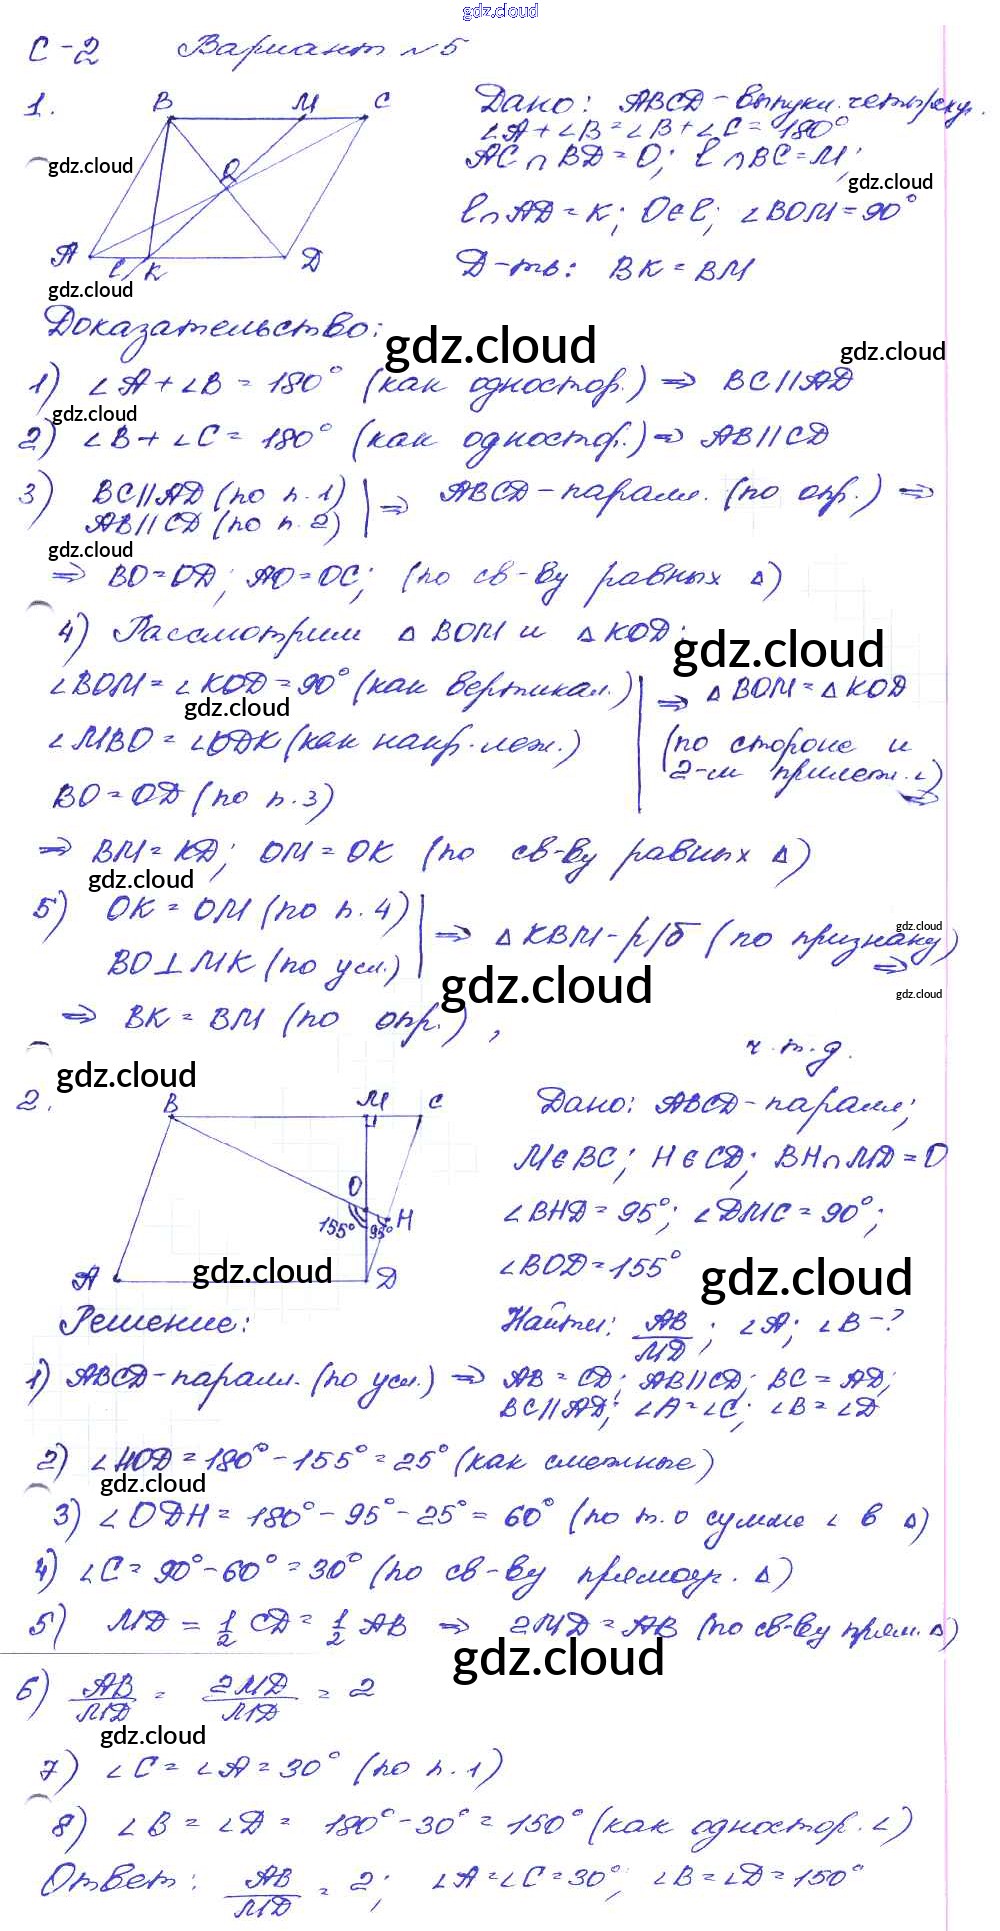 gdz.cloud
С-2 Вариант №5
1. B M C
O
A l K D
Дано: ABCD - выпукл. четырехуг.
∠A + ∠B = ∠B + ∠C = 180°
AC ∩ BD = O; l ∩ BC = M;
l ∩ AD = K; O ∈ l; ∠BOM = 90°
Д-ть: BK = BM
gdz.cloud
gdz.cloud
gdz.cloud
Доказательство:
gdz.cloud
gdz.cloud
1) ∠A + ∠B = 180° (как одностор.) ⇒ BC || AD
gdz.cloud
2) ∠B + ∠C = 180° (как одностор.) ⇒ AB || CD
3) BC || AD (по п. 1)
AB || CD (по п. 2) | ⇒ ABCD - паралл. (по опр.) ⇒
gdz.cloud
⇒ BO = OD; AO = OC; (по св-ву равных Δ)
4) Рассмотрим Δ BOM и Δ KOD:
gdz.cloud
∠BOM = ∠KOD = 90° (как вертикал.)
gdz.cloud
∠MBO = ∠ODK (как накр. леж.)
BO = OD (по п. 3)
⇒ Δ BOM = Δ KOD
(по стороне и
2-м прилеж. ∠)
⇒
⇒ BM = KD; OM = OK (по св-ву равных Δ)
gdz.cloud
5) OK = OM (по п. 4)
BO ⊥ MK (по усл.) | ⇒ Δ KBM - р/б (по признаку) ⇒
gdz.cloud
gdz.cloud
gdz.cloud
⇒ BK = BM (по опр.),
ч.т.д.
gdz.cloud
2. B M C
O
155° 95° H
A D
Дано: ABCD - паралл;
M ∈ BC; H ∈ CD; BH ∩ MD = O
∠BHD = 95°; ∠DMC = 90°;
∠BOD = 155°
gdz.cloud
gdz.cloud
Найти: AB/MD; ∠A; ∠B - ?
Решение:
1) ABCD - паралл. (по усл.) ⇒ AB = CD; AB || CD; BC = AD;
BC || AD; ∠A = ∠C; ∠B = ∠D
2) ∠HOD = 180° - 155° = 25° (как смежные)
gdz.cloud
3) ∠ODH = 180° - 95° - 25° = 60° (по т. о сумме ∠ в Δ)
4) ∠C = 90° - 60° = 30° (по св-ву прямоуг. Δ)
5) MD = 1/2 CD = 1/2 AB ⇒ 2MD = AB (по св-ву прям. Δ)
gdz.cloud
6) AB/MD = 2MD/MD = 2
gdz.cloud
7) ∠C = ∠A = 30° (по п. 1)
8) ∠B = ∠D = 180° - 30° = 150° (как одностор. ∠)
Ответ: AB/MD = 2; ∠A = ∠C = 30°; ∠B = ∠D = 150°